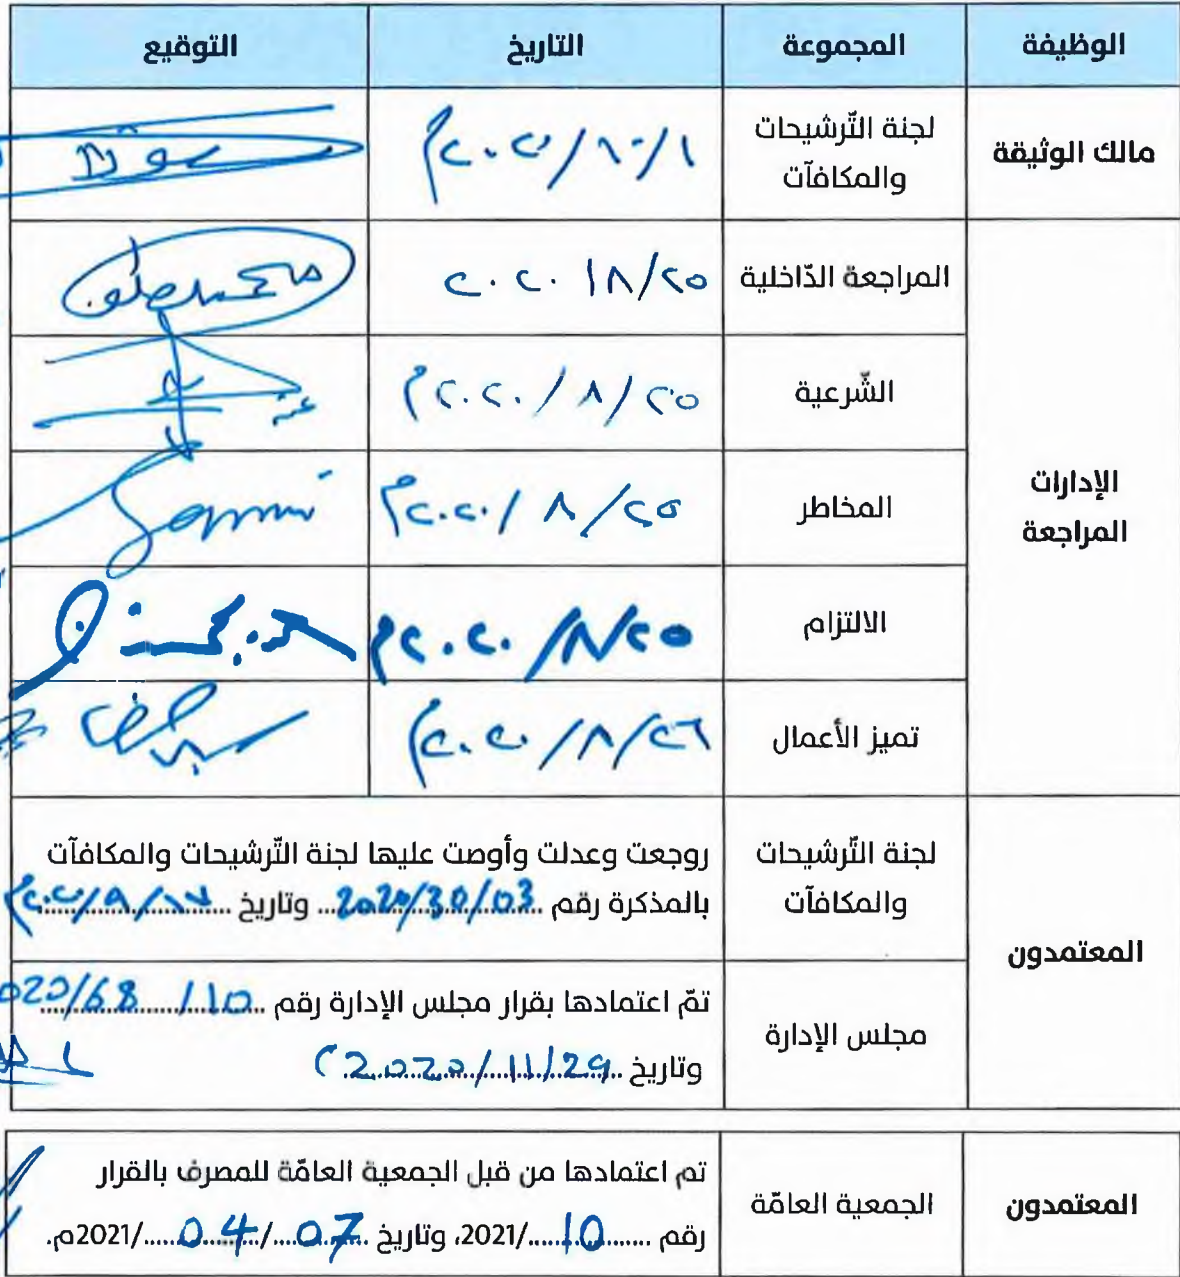 الوظيفة المجموعة التاريخ التوقيع
مالك الوثيقة
لجنة التّرشيحات
والمكافآت
٢٠٢٠/١٠/١م
الإدارات
المراجعة
المراجعة الدّاخلية
٢٠٢٠/٨/٢٥
الشّرعية
٢٠٢٠/٨/٢٥م
المخاطر
٢٠٢٠/٨/٢٥م
Sammi
الالتزام
٢٠٢٠/٨/٢٥م
تميز الأعمال
٢٠٢٠/٨/٢٦م
المعتمدون
لجنة التّرشيحات
والمكافآت
روجعت وعدلت وأوصت عليها لجنة التّرشيحات والمكافآت
بالمذكرة رقم 2020/30/03 وتاريخ
مجلس الإدارة
تمّ اعتمادها بقرار مجلس الإدارة رقم 020/68/10
وتاريخ 2020/11/29م
المعتمدون
الجمعية العامّة
تم اعتمادها من قبل الجمعية العامّة للمصرف بالقرار
رقم 10/2021، وتاريخ 07/04/2021م.